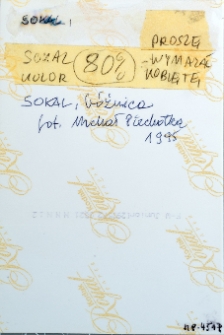 SOKAL,
PROSZĘ
SOKAL 80% -WYMAZAĆ
KOLOR KOBIETĘ
SOKAL, bóżnica
fot. Michał Piechotka
1995